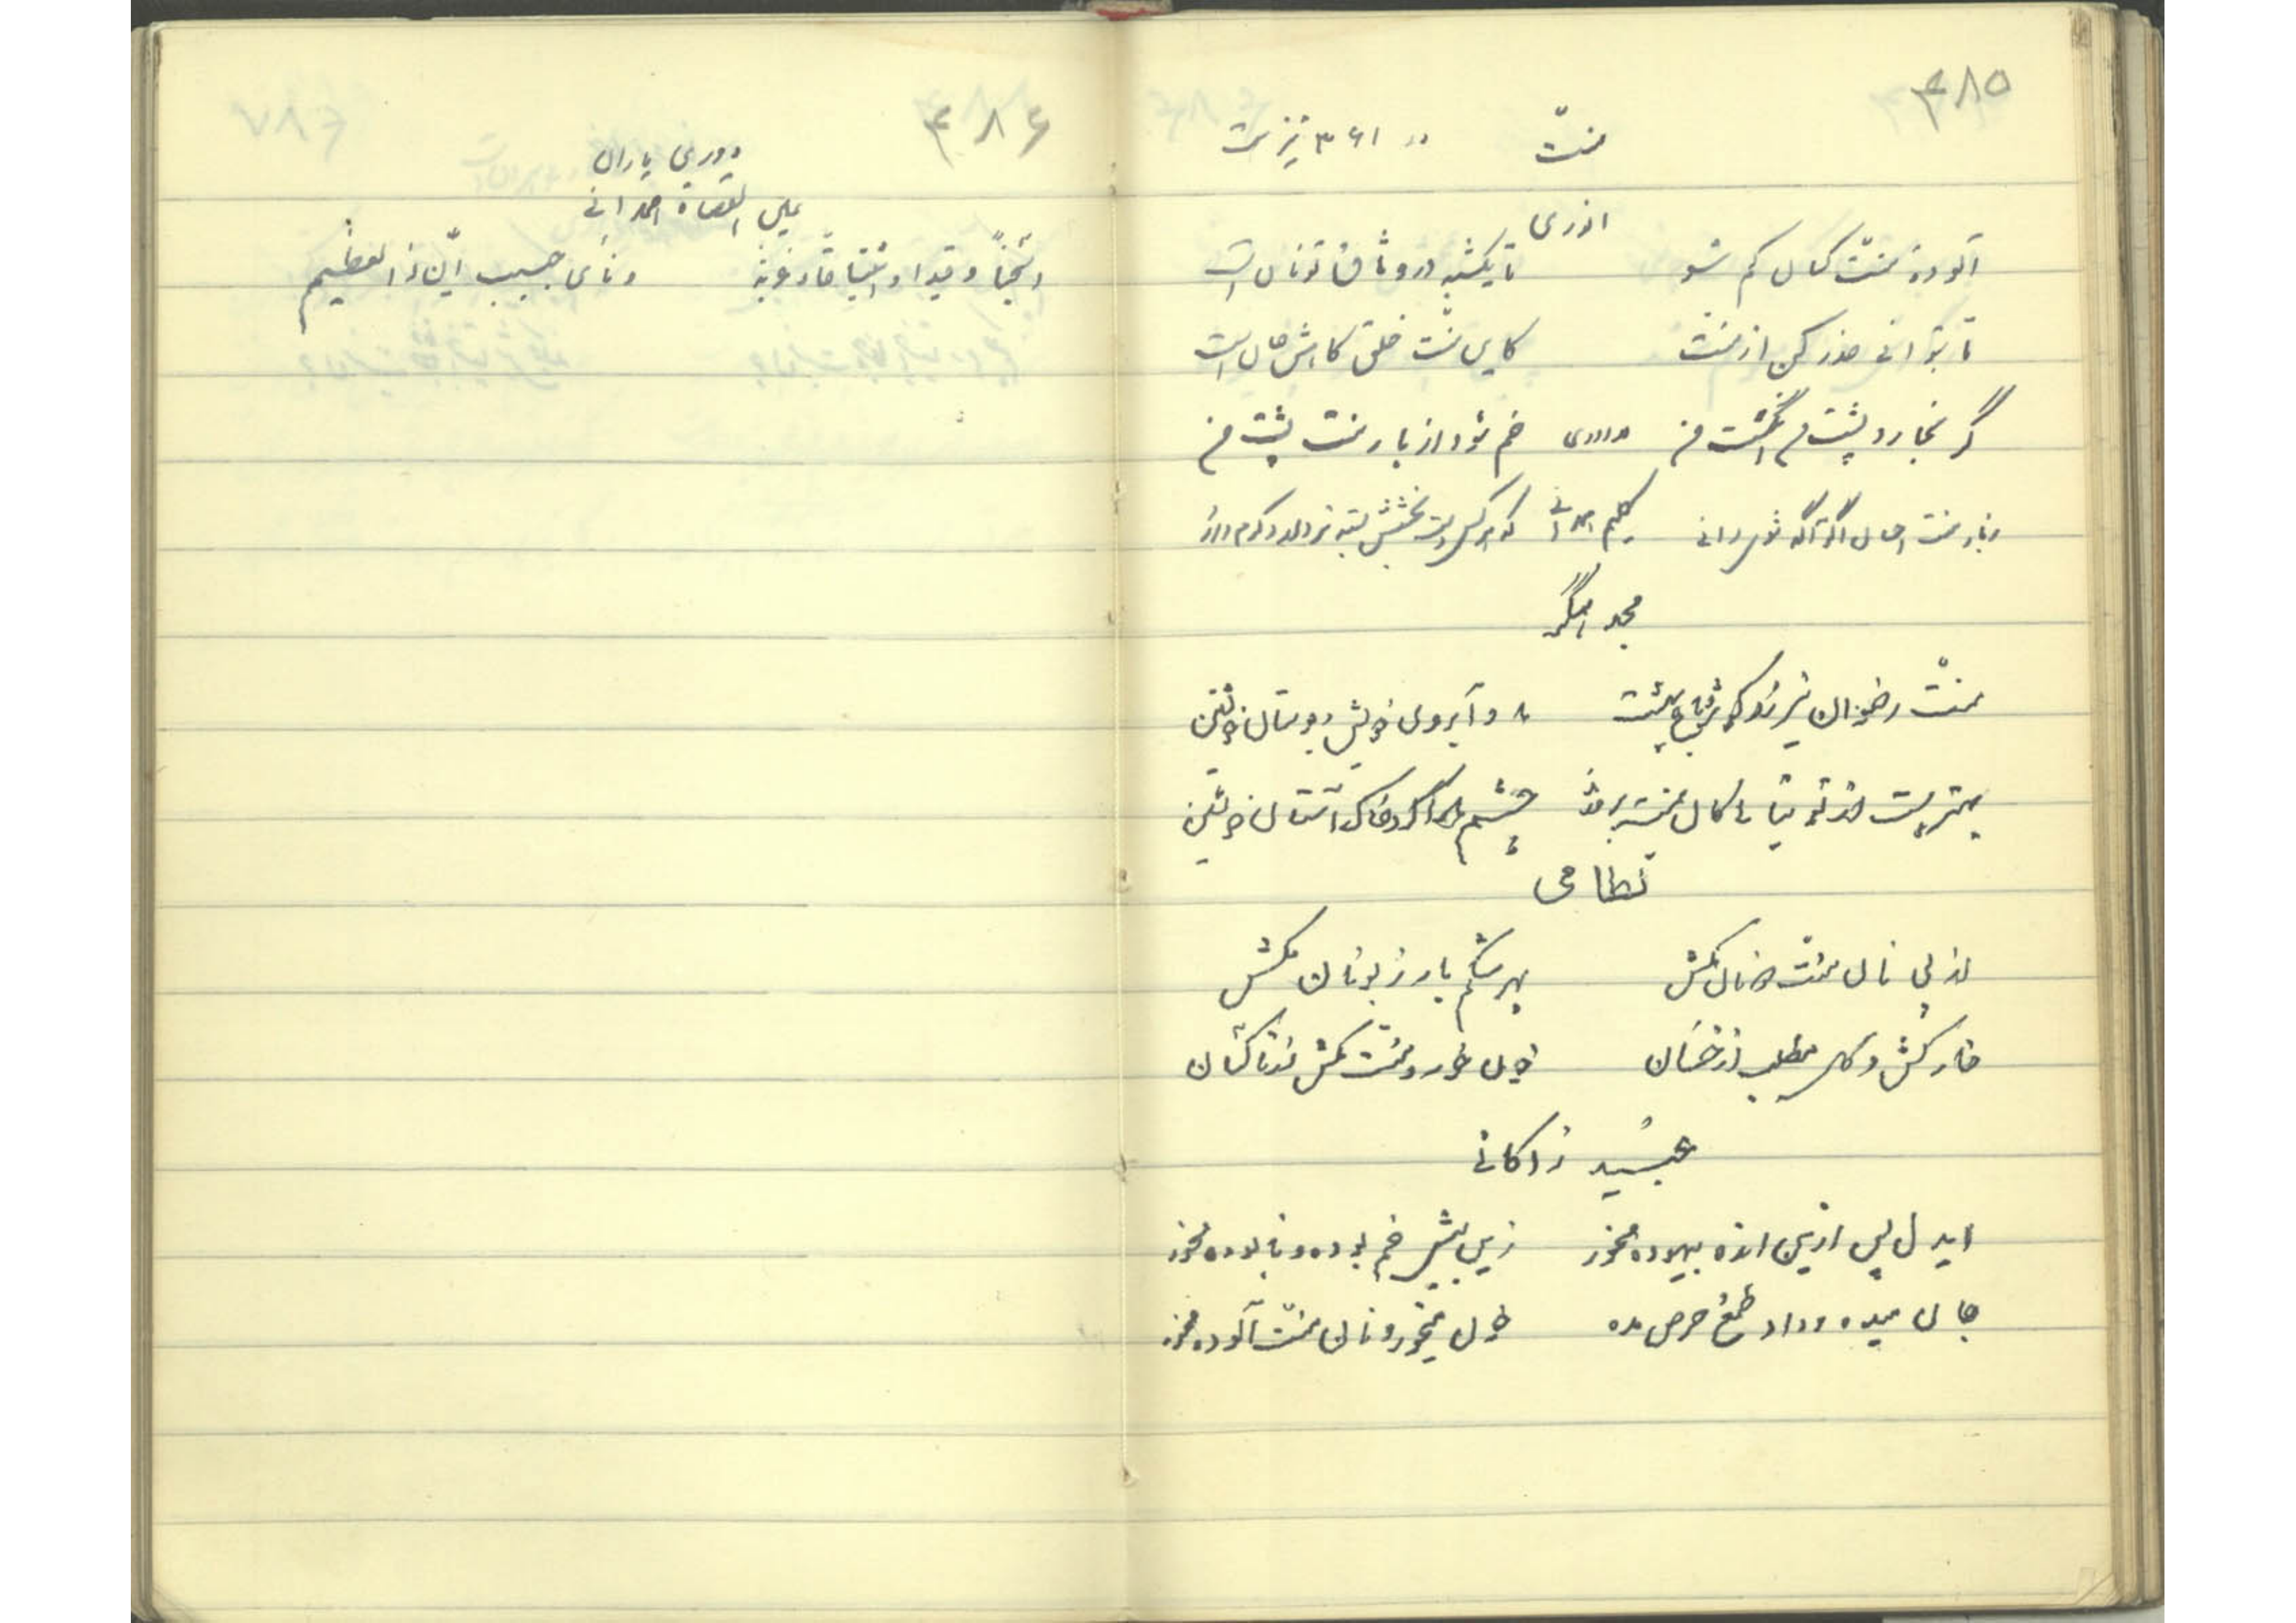 ۴۸۵
منّت در ۳۶۱ نیز هست
انوری
آلودهٔ منّت کسان کم شو تا یکشبه در وثاق تو نان است
تا بتوانی حذر کن از منّت کاین منّت خلق کاهش جان است
گر نخارد پشت من انگشت من خم شود از بار منّت پشت من
ز بار منّت احسان اگر آگه شوی دانی کلیم همدانی که هر کس دست بخشش بسته‌تر دارد کرم دارد
مجد همگر
منّت رضوان نیرزد گر بباغ بهشت ما و آبروی خویش و بوستان خویشتن
بهتر است از توتیای کسان منّت بر مرا چشم را گرد خاک آستان خویشتن
نظامی
از پی نان منّت دونان مکش بهر شکم بار زبونان مکش
خار کش و گل مطلب از خسان خون خور و منّت مکش از ناکسان
عبید زاکانی
ایدل پس ازین انده بیهوده مخور زین بیش غم بوده و نابوده مخور
جان میده و داد طمع و حرص مده خون میخور و نان منّت آلوده مخور
۴۸۶
دوری یاران
عین القضاة همدانی
اسجناً و قیداً و اشتیاقاً و غربة و نأی حبیب انّ ذا لعظیم